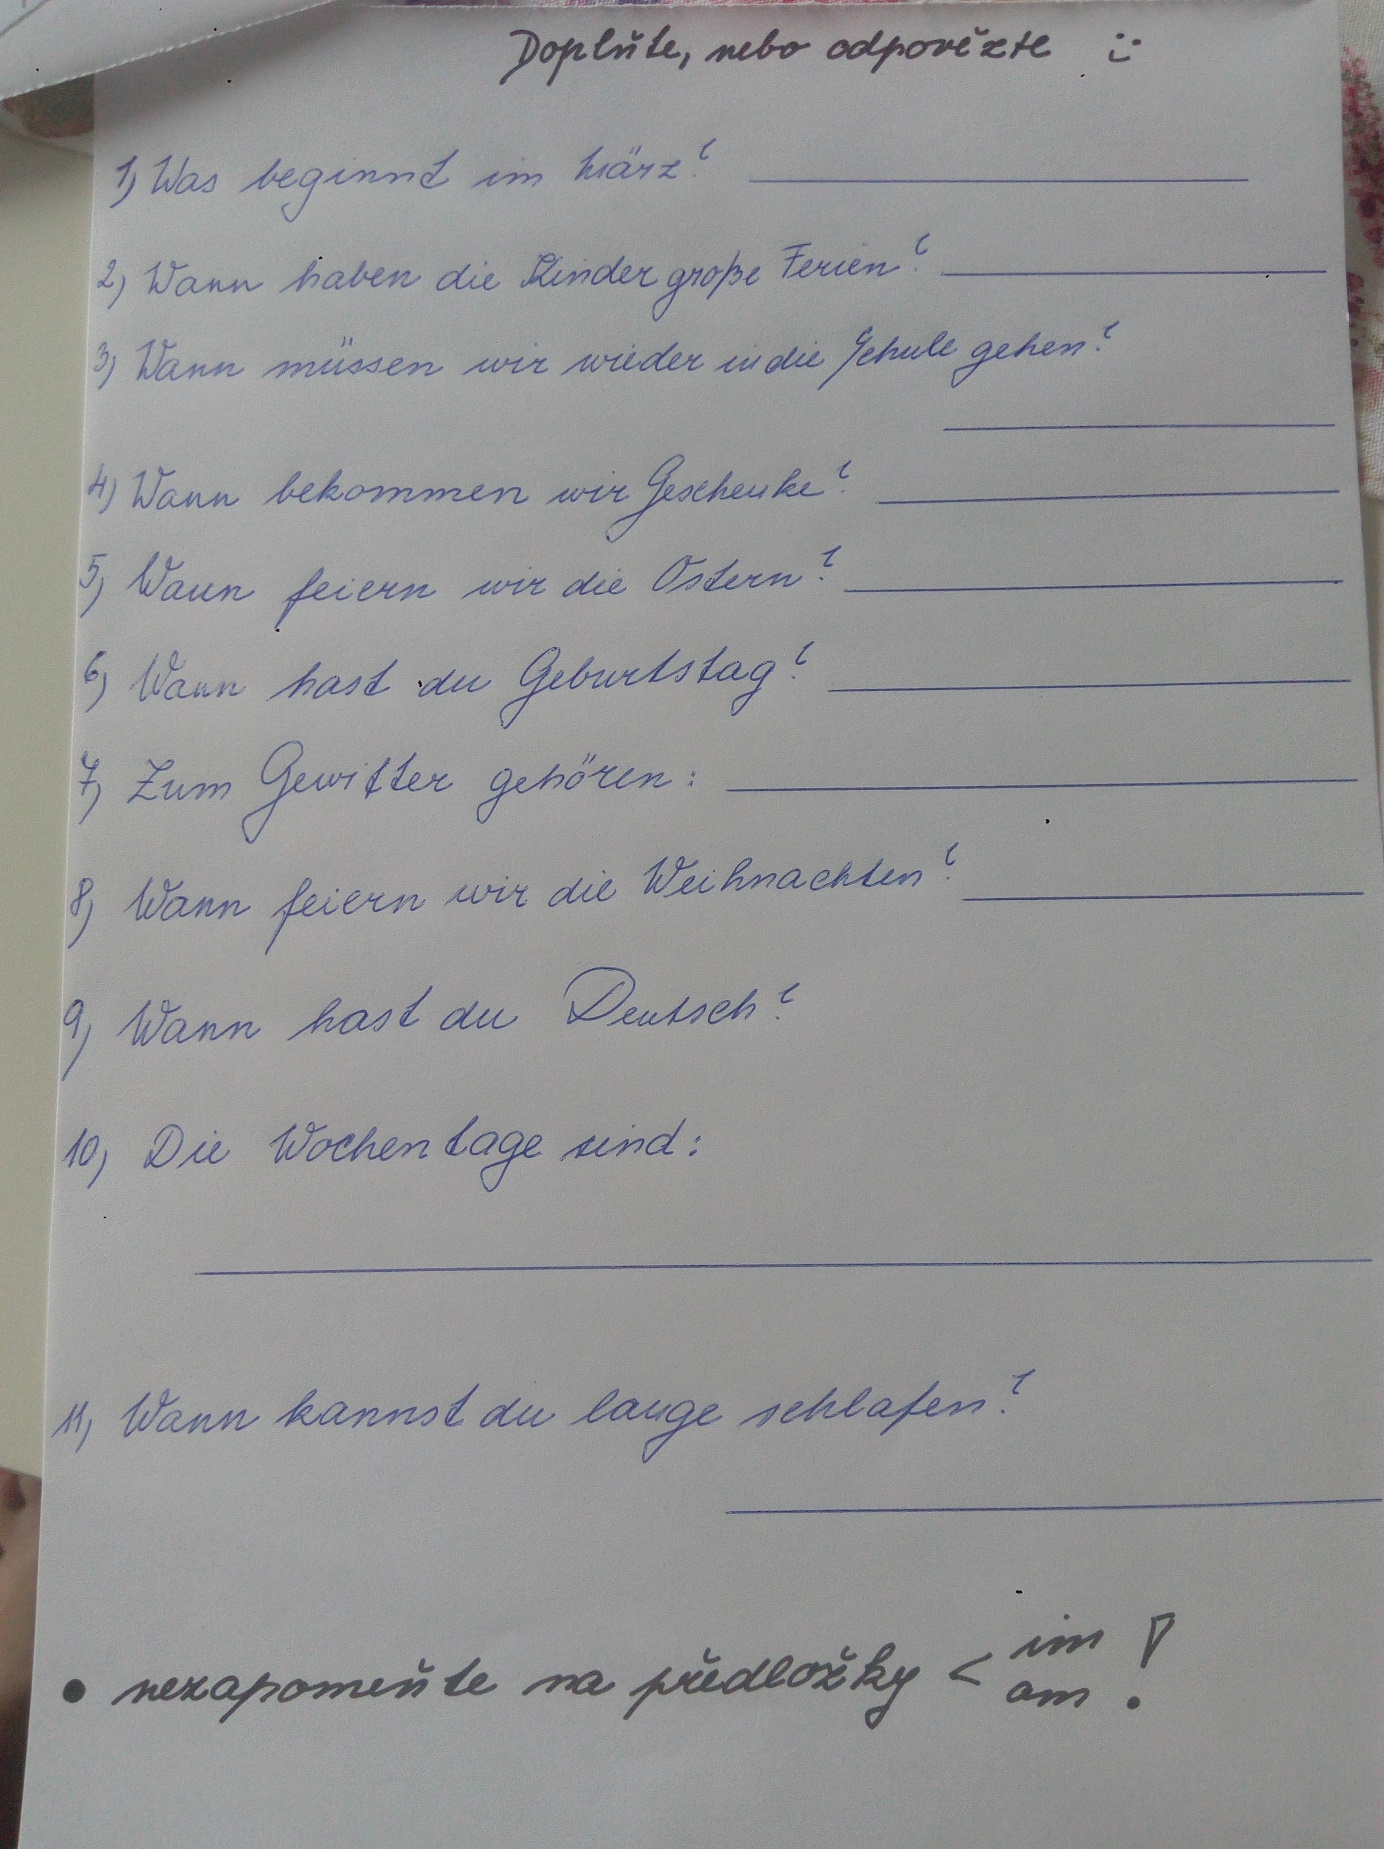 Doplňte, nebo odpovězte :)
1) Was beginnt im März?
2) Wann haben die Kinder große Ferien?
3) Wann müssen wir wieder in die Schule gehen?
4) Wann bekommen wir Geschenke?
5) Wann feiern wir die Ostern?
6) Wann hast du Geburtstag?
7) Zum Gewitter gehören:
8) Wann feiern wir die Weihnachten?
9) Wann hast du Deutsch?
10) Die Wochentage sind:
11) Wann kannst du lange schlafen?
• nezapomeňte na předložky < im
am !